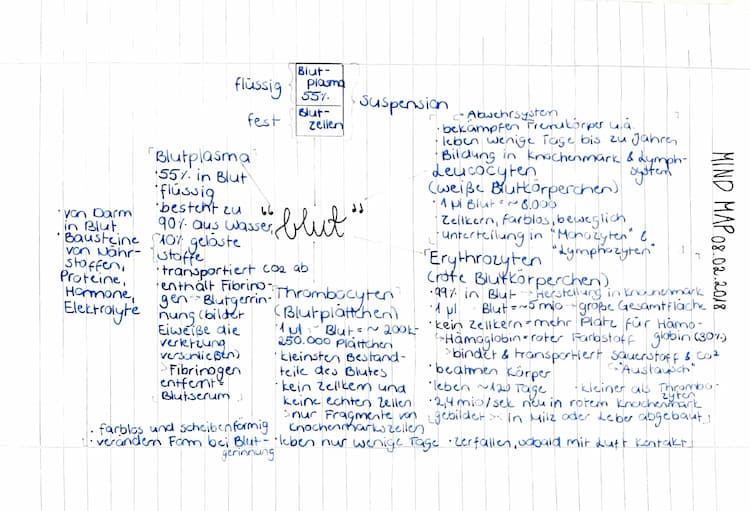 MIND MAP 08.02.2018
flüssig
fest
Blut-
plasma
55%
Blut-
zellen
suspension
"blut"
Blutplasma
· 55% in Blut
· flüssig
· besteht zu
90% aus Wasser,
10% gelöste
Stoffe
· transportiert CO2 ab
· enthält Fibrino-
gen → Blutgerrin-
nung (bilder
Eiweiße die
verletzung
verschließen)
> Fibrinogen
entfernt =
Blutserum
· von Darm
in Blut
Bausteine
von Nähr-
stoffen,
Proteine,
Hormone,
Elektrolyte
Thrombocyten
(Blutplättchen)
· 1 µl Blut = ~ 200k-
250.000 Plättchen
· kleinsten Bestand-
teile des Blutes
· kein Zellkern und
keine echten Zellen
> nur Fragmente von
Knochenmarkszellen
· leben nur wenige Tage · zerfallen, sobald mit Luft Kontakt
· farblos und scheibenförmig
· verändern Form bei Blut-
gerinnung
- Abwehrsystem
· bekämpfen Fremdkörper u.ä.
· leben wenige Tage bis zu Jahren
· Bildung in Knochenmark & Lymph-
system
Leucocyten
(weiße Blutkörperchen)
· 1 µl Blut = ~ 8.000
· Zellkern, farblos, beweglich
· unterteilung in "Monozyten" &
"Lymphozyten"
Erythrozyten
(rote Blutkörperchen)
· 99% in Blut → Herstellung in Knochenmark
· 1 µl Blut = ~5 mio → große Gesamtfläche
· kein Zellkern = mehr Platz für Hämo-
globin (30%)
> Hämoglobin = roter Farbstoff
> bindet & transportiert sauerstoff & CO2
"Austausch"
· beatmen Körper
· leben ~120 Tage · kleiner als Thrombo-
zyten
· 2,4 mio/sek neu in rotem Knochenmark
gebildet > in Milz oder Leber abgebaut